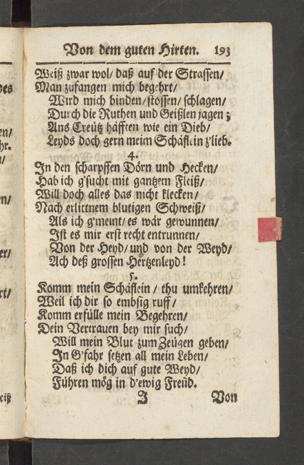 Von dem guten Hirten. 193
Weiß zwar wol/ daß auf der Strassen/
Man zufangen mich begehrt/
Wird mich binden/ stossen/ schlagen/
Durch die Ruthen und Geißlen jagen ;
Ans Creütz häfften wie ein Dieb/
Leyds doch gern meim Schäfl.in z'lieb.
4.
In den scharpffen Dörn und Hecken/
Hab ich g'sucht mit gantzem Fleiß/
Will doch alles das nicht klecken/
Nach erlittnem blutigen Schweiß/
Als ich g'meint/ es wär gewunnen/
Ist es mir erst recht entrunnen/
Von der Heyd/ und von der Weyd/
Ach deß grossen Hertzenleyd!
5.
Komm mein Schäflein/ thu umkehren/
Weil ich dir so embsig ruff/
Komm erfülle mein Begehren/
Dein Vertrauen bey mir such/
Will mein Blut zum Zeügen geben/
In G'fahr setzen all mein Leben/
Daß ich dich auf gute Weyd/
Führen mög in d'ewig Freüd.
J Von